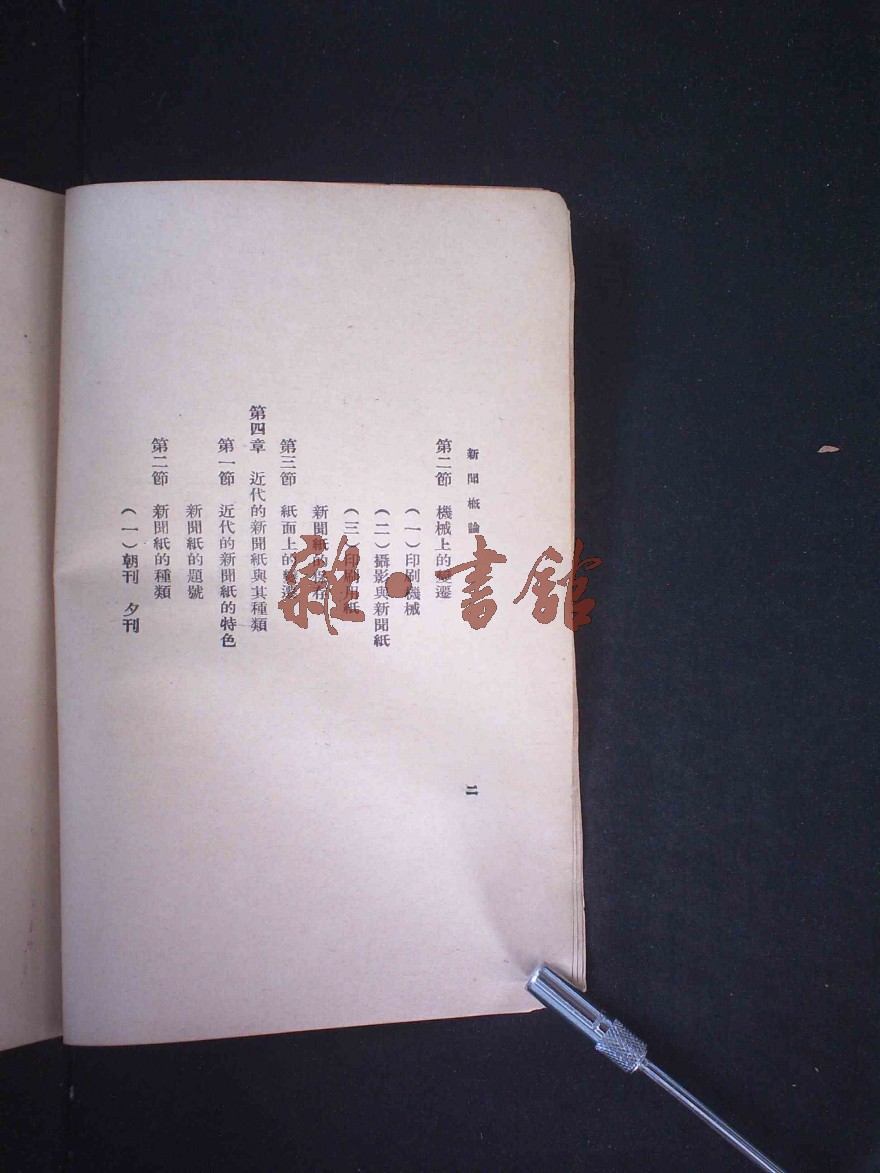 新聞概論
二
第二節　機械上的變遷
（一）印刷機械
（二）攝影與新聞紙
（三）印刷用紙
新聞紙的保存
第三節　紙面上的變遷
第四章　近代的新聞紙與其種類
第一節　近代的新聞紙的特色
新聞紙的題號
第二節　新聞紙的種類
（一）朝刊　夕刊
雜·書館